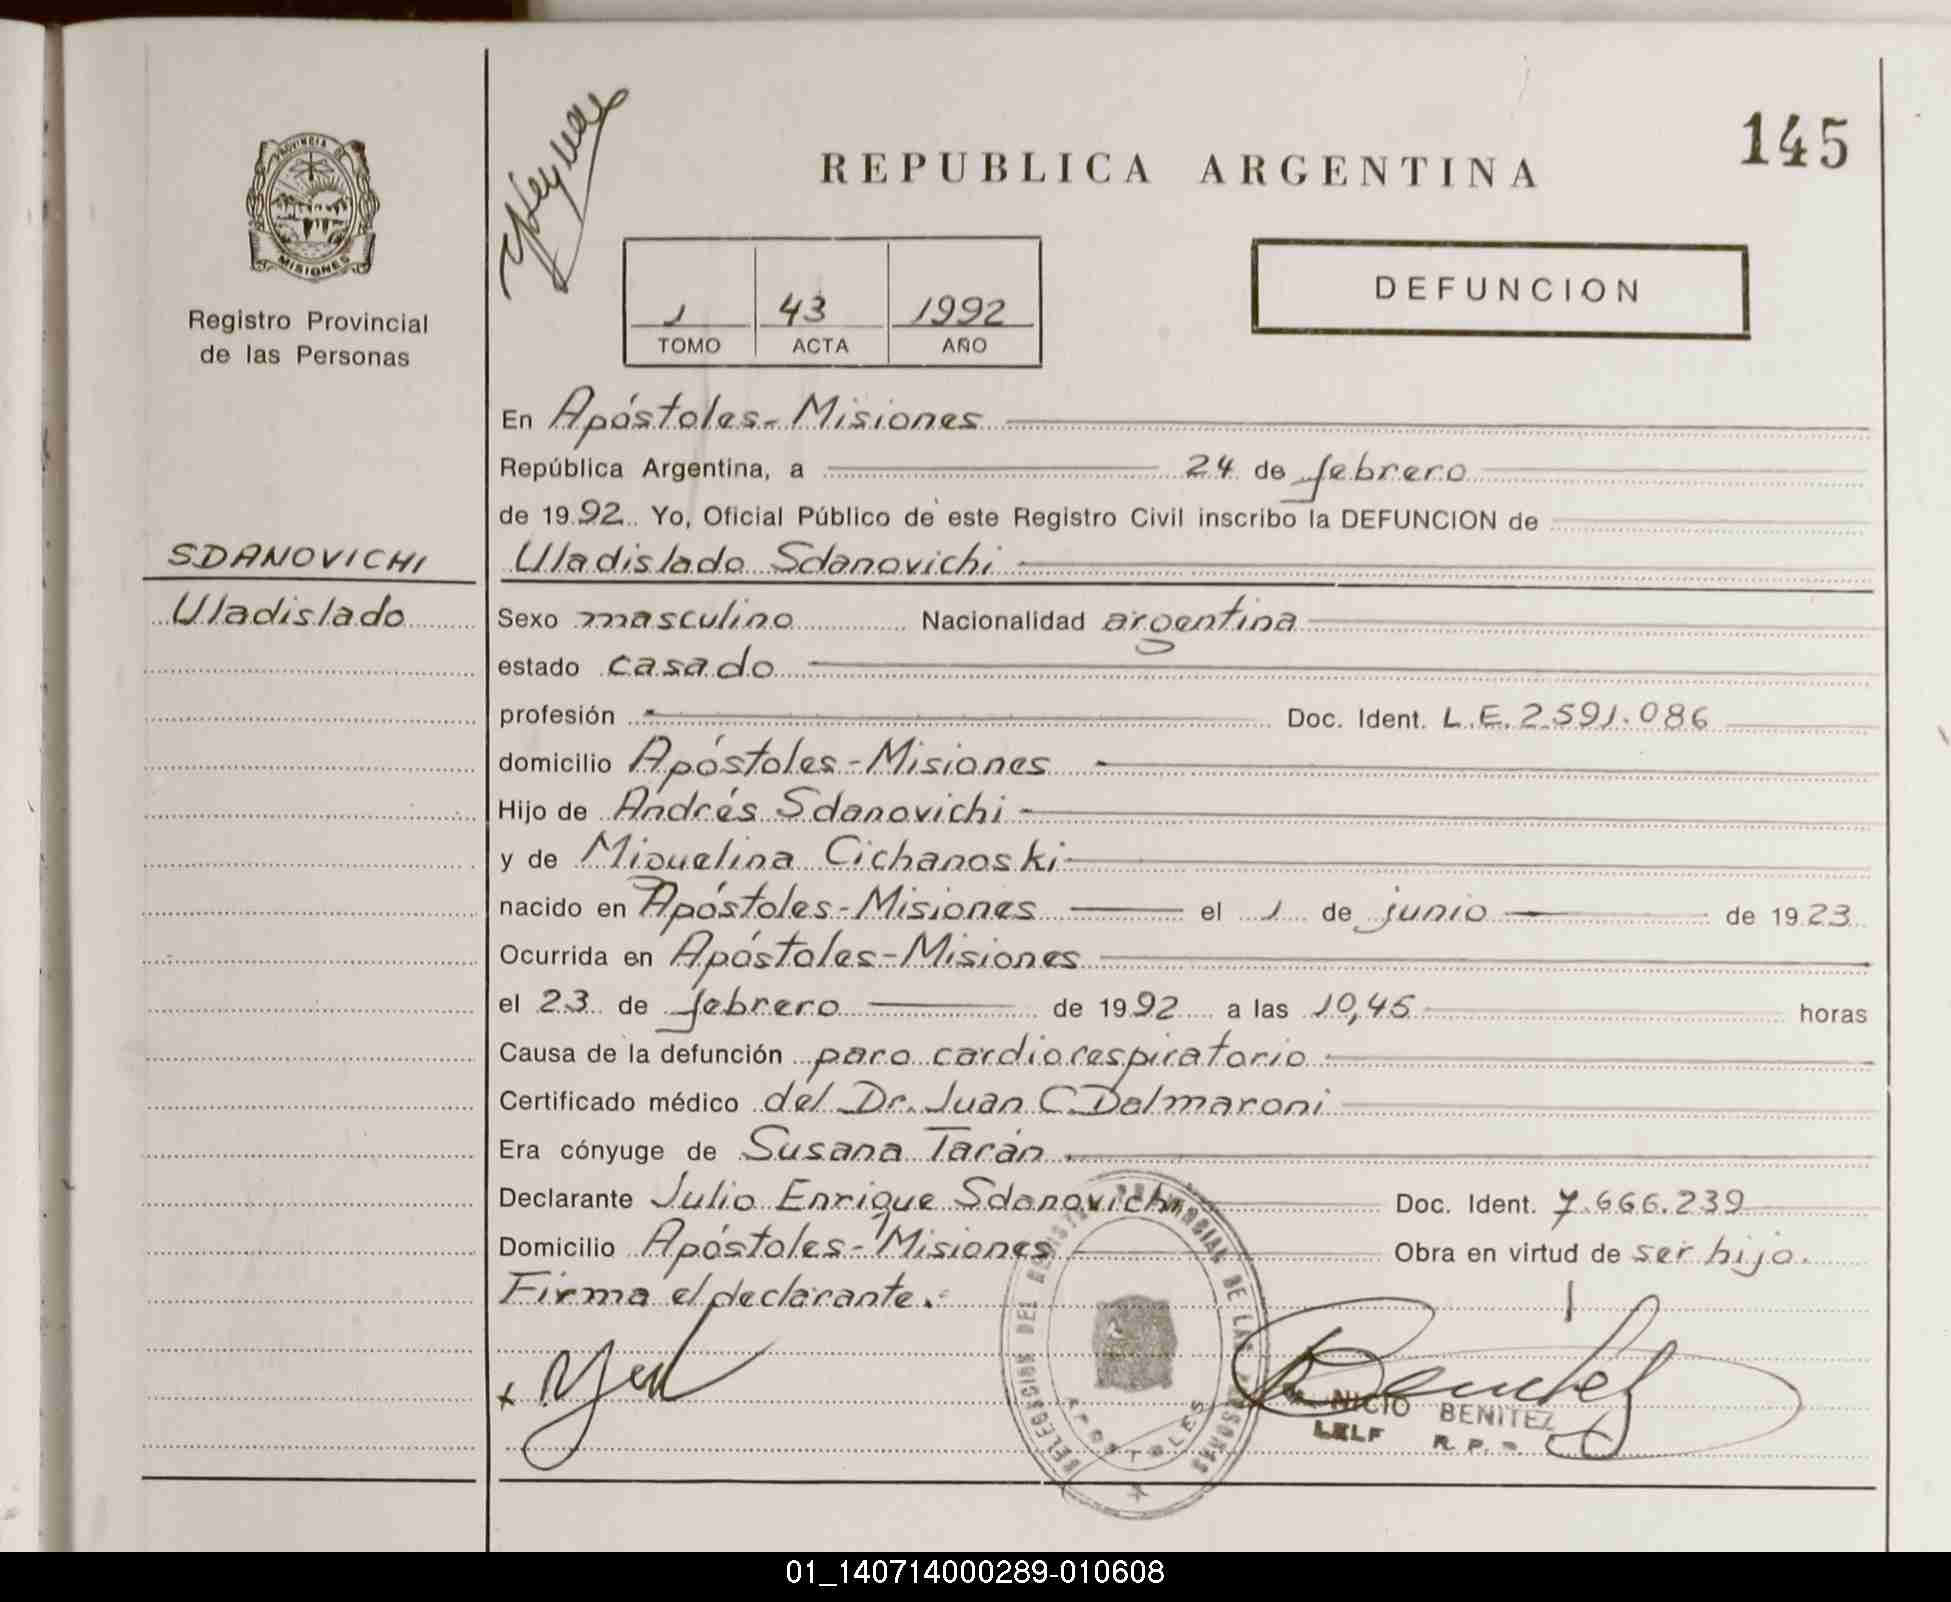 145
REPUBLICA ARGENTINA
PROVINCIA DE MISIONES
Registro Provincial
de las Personas
DEFUNCION
1 43 1992
TOMO ACTA AÑO
En Apóstoles-Misiones
República Argentina, a 24 de febrero
de 1992 Yo, Oficial Público de este Registro Civil inscribo la DEFUNCION de
SDANOVICHI
Uladislado
Uladislado Sdanovichi
Sexo masculino Nacionalidad argentina
estado casado
profesión Doc. Ident. L.E. 2.591.086
domicilio Apóstoles-Misiones
Hijo de Andrés Sdanovichi
y de Miquelina Cichanoski
nacido en Apóstoles-Misiones el 1 de junio de 1923
Ocurrida en Apóstoles-Misiones
el 23 de febrero de 1992 a las 10,45 horas
Causa de la defunción paro cardiorespiratorio
Certificado médico del Dr. Juan C Dalmaroni
Era cónyuge de Susana Tarán
Declarante Julio Enrique Sdanovichi Doc. Ident. 7.666.239
Domicilio Apóstoles-Misiones Obra en virtud de ser hijo.
Firma el declarante.
DELEGACION DEL REGISTRO PROVINCIAL DE LAS PERSONAS
APOSTOLES
BENITEZ
R. P.
01_140714000289-010608